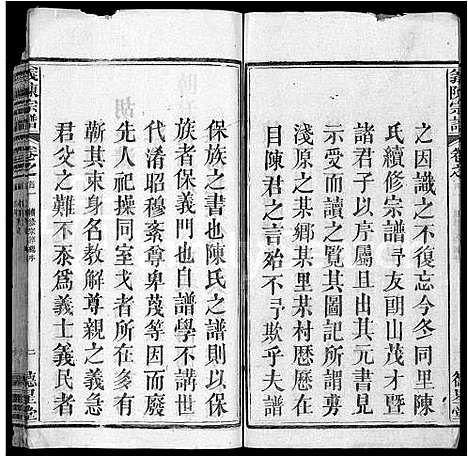 義陳宗譜
卷之首
之因識之不復忘今冬同里陳
氏續修宗譜予友朗山茂才暨
諸君子以序屬且出其元書見
示受而讀之其圖記所載予前
淺原之某鄉某里某村歷歷在
目陳君之言豈不予欺乎夫譜
保族之書也陳氏之譜則以保
族者保義門也自譜學不講世
代淆昭穆紊尊卑蔑等因而廢
先人祀操同室戈者多有之
蘄其束身名教解尊親之義明
君父之難不忝為義士義民者
義陳宗譜
卷之首
二
德星堂